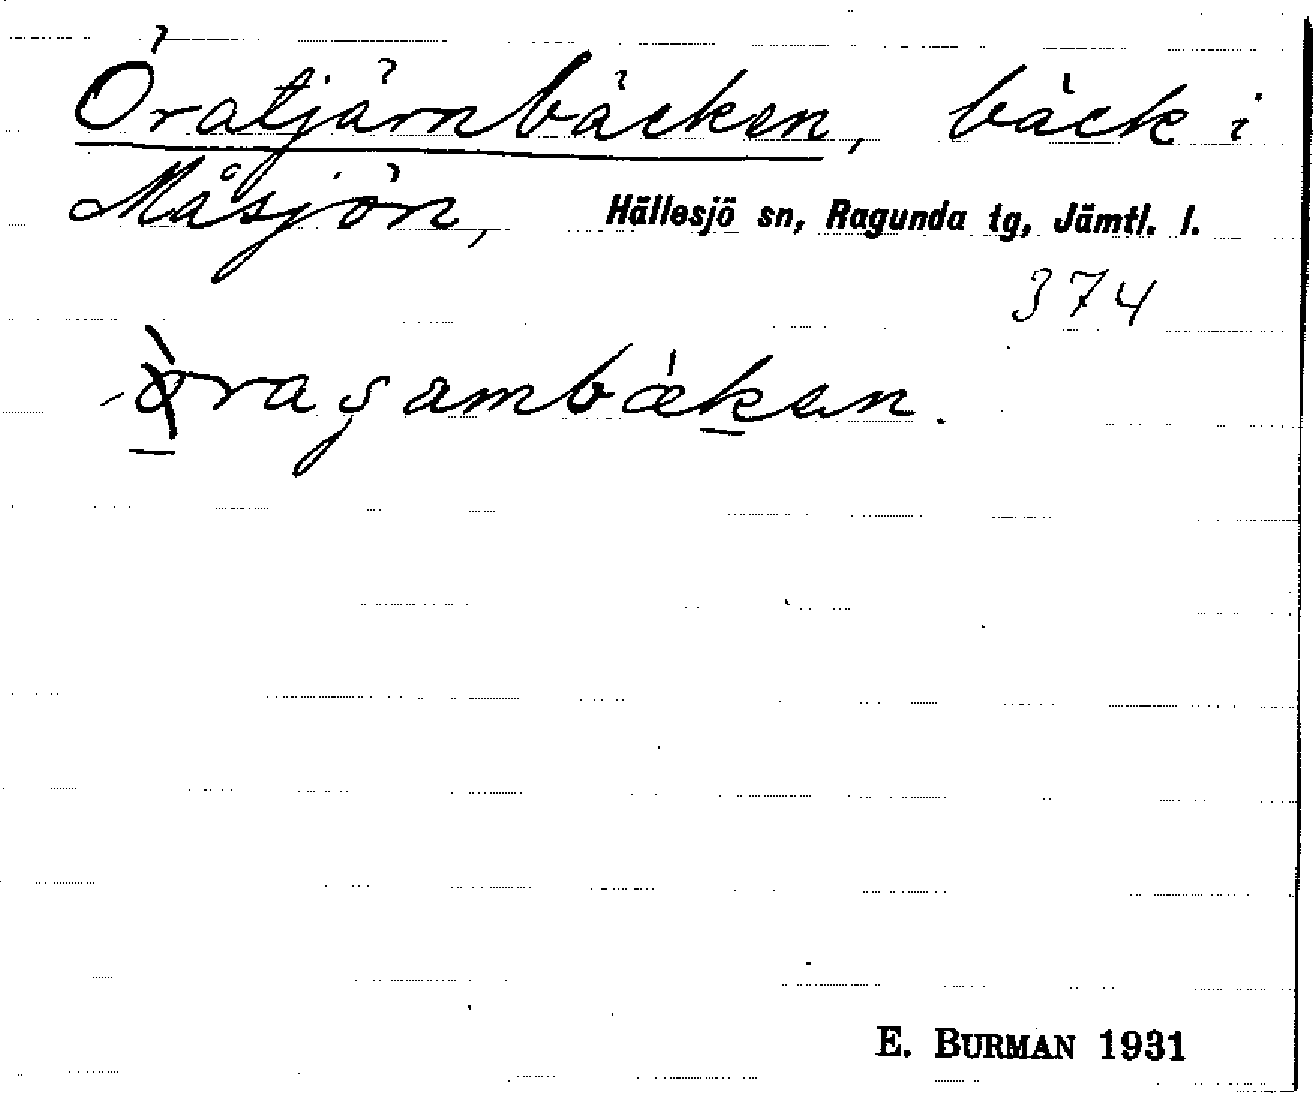 Öratjärnbäcken, bäck i
Måsjön, Hällesjö sn, Ragunda tg, Jämtl. l.
374
E. BURMAN 1931